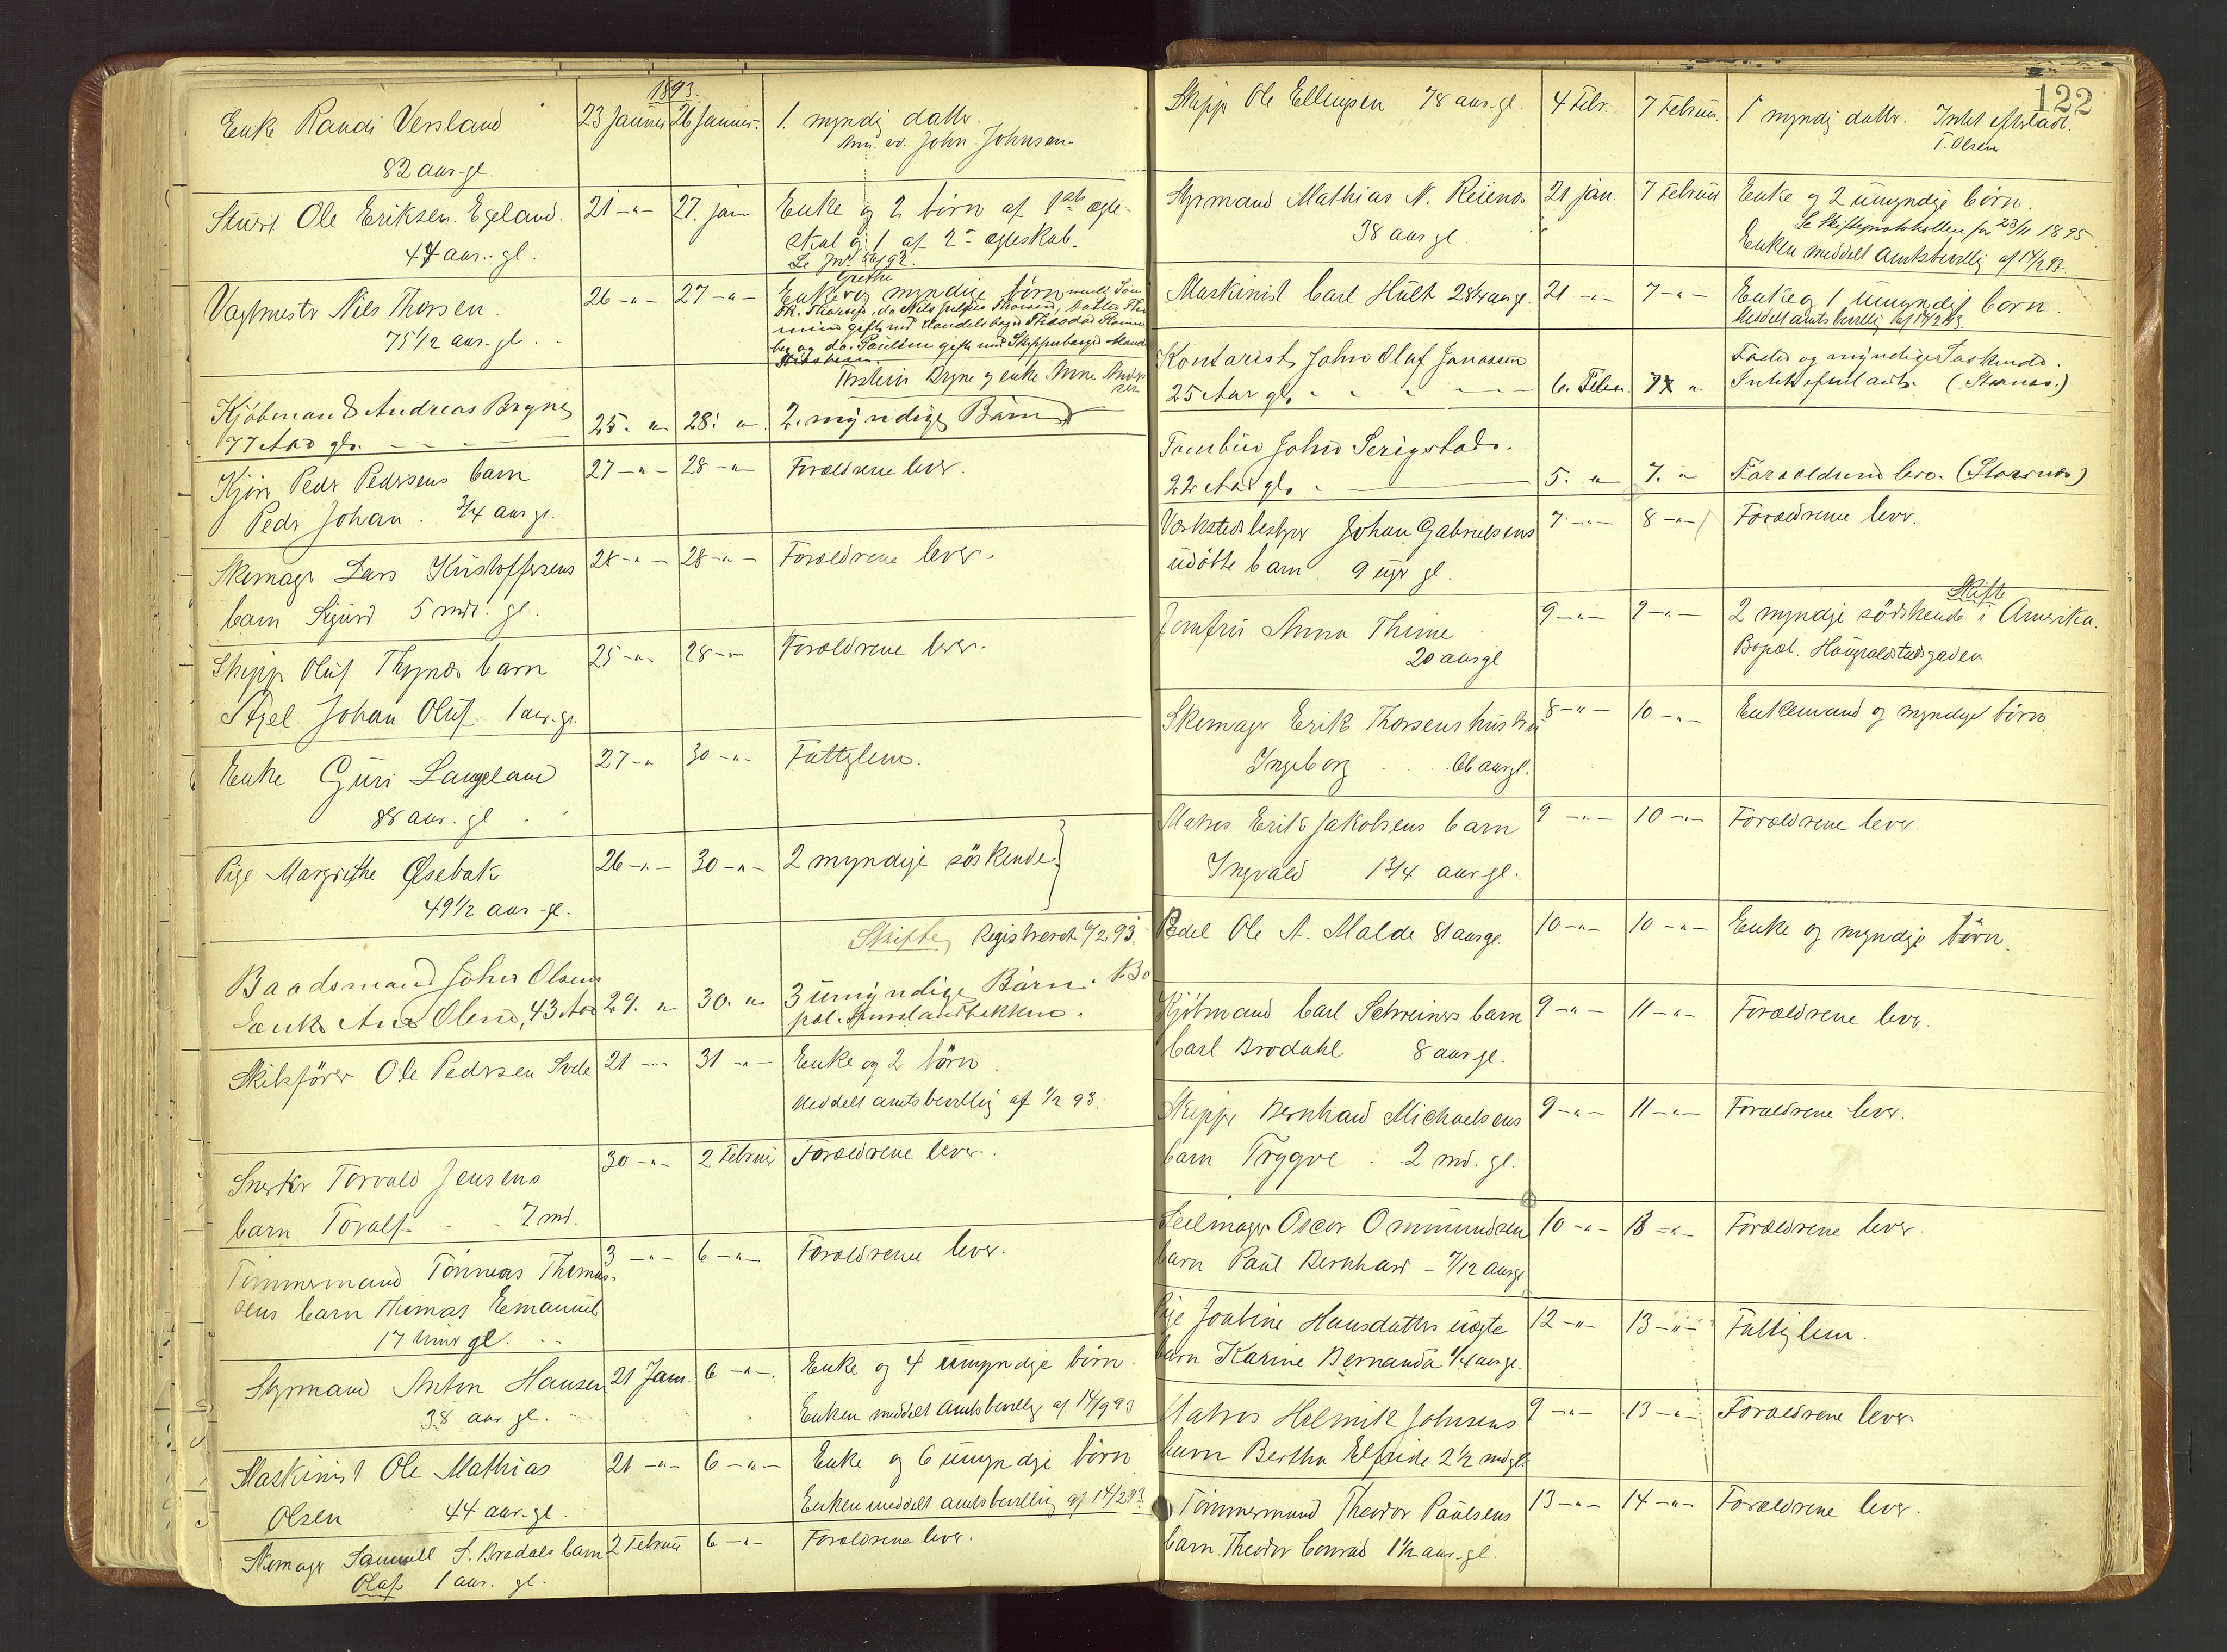 1893.
Enke Randi Versland 23 Januar 26 Januar. 1. myndig datter.
82 aar. gl. Anm. av. John. Johnsen.
Stuert Ole Eriksen Egeland. 21 -"- 27. jan Enke og 2 börn af 1ste ægte-
44 aar. gl. skab og 1 af 2det ægteskab.
Se Jnr 56/92.
Grethe
Vagtmester Nils Thorsen. 26 -"- 27 -"- Enke og myndige börn
75 1/2 aar. gl.
Torstein Bryne og enke Anne
Kjøbmand Andreas Bryne 25. " 28. " 2 myndige Børn
77 Aar gl.
Peder Pedersens barn 27 -"- 28 -"- Forældrene lever.
Peder Johan. 3/4 aar gl.
Skomager Lars Kristoffersens 28 -"- 28 -"- Forældrene lever.
barn Sigurd 5 mdr. gl.
Skipper Oluf Thynæs barn 25 -"- 28 -"- Forældrene lever.
Axel Johan Oluf 1 aar. gl.
Enke Guri Langeland 27 -"- 30 -"- Fattiglem.
88 aar. gl
Pige Margrethe Øsebak 26 -"- 30 -"- 2 myndige söskende.
49 1/2 aar gl.
Skifte, Registreret 6/2 93.
Baadsmand John Olsens 3 umyndige Børn. Bo
Enke Ane Olene, 43 Aar 29. " 30. " pæl.
Skibsförer Ole Pedersen 21 -"- 31 -"- Enke og 2 börn.
Meddelt amtsbevilling af 1/2 93.
Snerker Torvald Jensens 30 -"- 2 Februar Forældrene lever.
barn Toralf 7 md.
Tömmermand Tönneas Thomas- 3 -"- 6 -"- Forældrene lever.
sens barn Thomas Emanuel
17 timer gl.
Styrmand Anton Hansen 21 Jan. 6 -"- Enke og 4 umyndige börn.
38 aar gl. Enken meddelt Amtsbevilling af 14/9 93
Maskinist Ole Mathias 21 -"- 6 -"- Enke og 6 umyndige börn
Olsen 44 aar. gl. Enken meddelt amtsbevilling af 14/2 93
Skomager Samuell S. Bredals barn 2 Februar 6 -"- Forældrene lever.
Olaf 1 aar. gl.
122
Skipper Ole Ellingsen 78 aar. gl. 4 Febr. 7 Februar. 1 myndig datter. Intet efterladt.
T. Olsen
Styrmand Mathias N. Reienæs 21 jan. 7 Februar Enke og 2 umyndige börn.
38 aar gl. Se Skifteprotokollen for 23/11 1895.
Enken meddelt Amtsbevillig af 14/2 93.
Maskinist Carl Hült 28 1/4 aar gl. 21 -"- 7 -"- Enke og 1 umyndigt barn.
Meddelt amtsbevillig af 14/2 93.
Kontorist John Olaf Jonassen Fader og myndige Søskende.
25 Aar gl. 6. Febr. 7 " Intet efterladt.
Tambur John Serigstad.
22 Aar gl. 5. " 7. " Forældrene lever.
Værkstedsbestyrer Johan Gabrielsens 7 -"- 8 -"- Forældrene lever.
udöbte barn 9 uger gl.
Skifte
Jomfru Anna Thime 9 -"- 9 -"- 2 myndige södskende i Amerika.
20 aar gl Bopæl. Haugvaldstadsgaden
Skomager Erik Thorsens hustru 8 -"- 10 -"- Enkemand og myndige börn
Ingeborg 66 aar gl.
Matros Erik Jakobsens barn 9 -"- 10 -"- Forældrene lever.
Ingvald 1 3/4 aar gl.
Pedel Ole A. Malde 81 aar gl. 10 -"- 10 -"- Enke og myndige börn.
Kjöbmand Carl Schreiners barn 9 -"- 11 -"- Forældrene lever.
Carl Brodahl 8 aar gl.
Skipper Bernhard Michaelsens 9 -"- 11 -"- Forældrene lever.
barn Trygve 2 md. gl.
Seilmager Oscar Ommundsen 10 -"- 13 -"- Forældrene lever.
barn Paul Bernhard - 7/12 aar gl
Pige Joakine Hansdatters uægte 12 -"- 13 -"- Fattiglem.
barn Karine Bernanda 1/4 aar gl.
Matros Helmik Johnsens 9 -"- 13 -"- Forældrene lever.
barn Bertha Elfride 2 1/2 md gl.
Tömmermand Theodor Paulsens 13 -"- 14 -"- Forældrene lever.
barn Theodor Conrad 1 1/2 aar. gl.